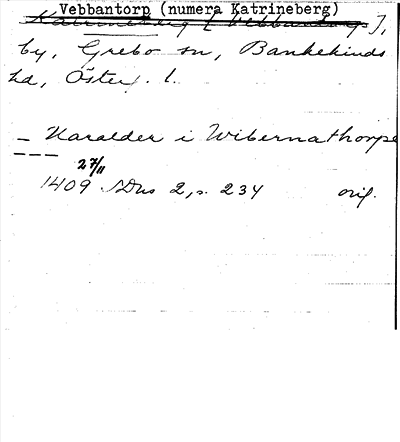 Vebbantorp (numera Katrineberg)
Katrineberg [Vebbantorp],
by, Grebo sn, Bankekinds
hd, Österg. l.
— Haralder i Wibernathorpe
---
27/11
1409 SDns 2, s. 234 orig.